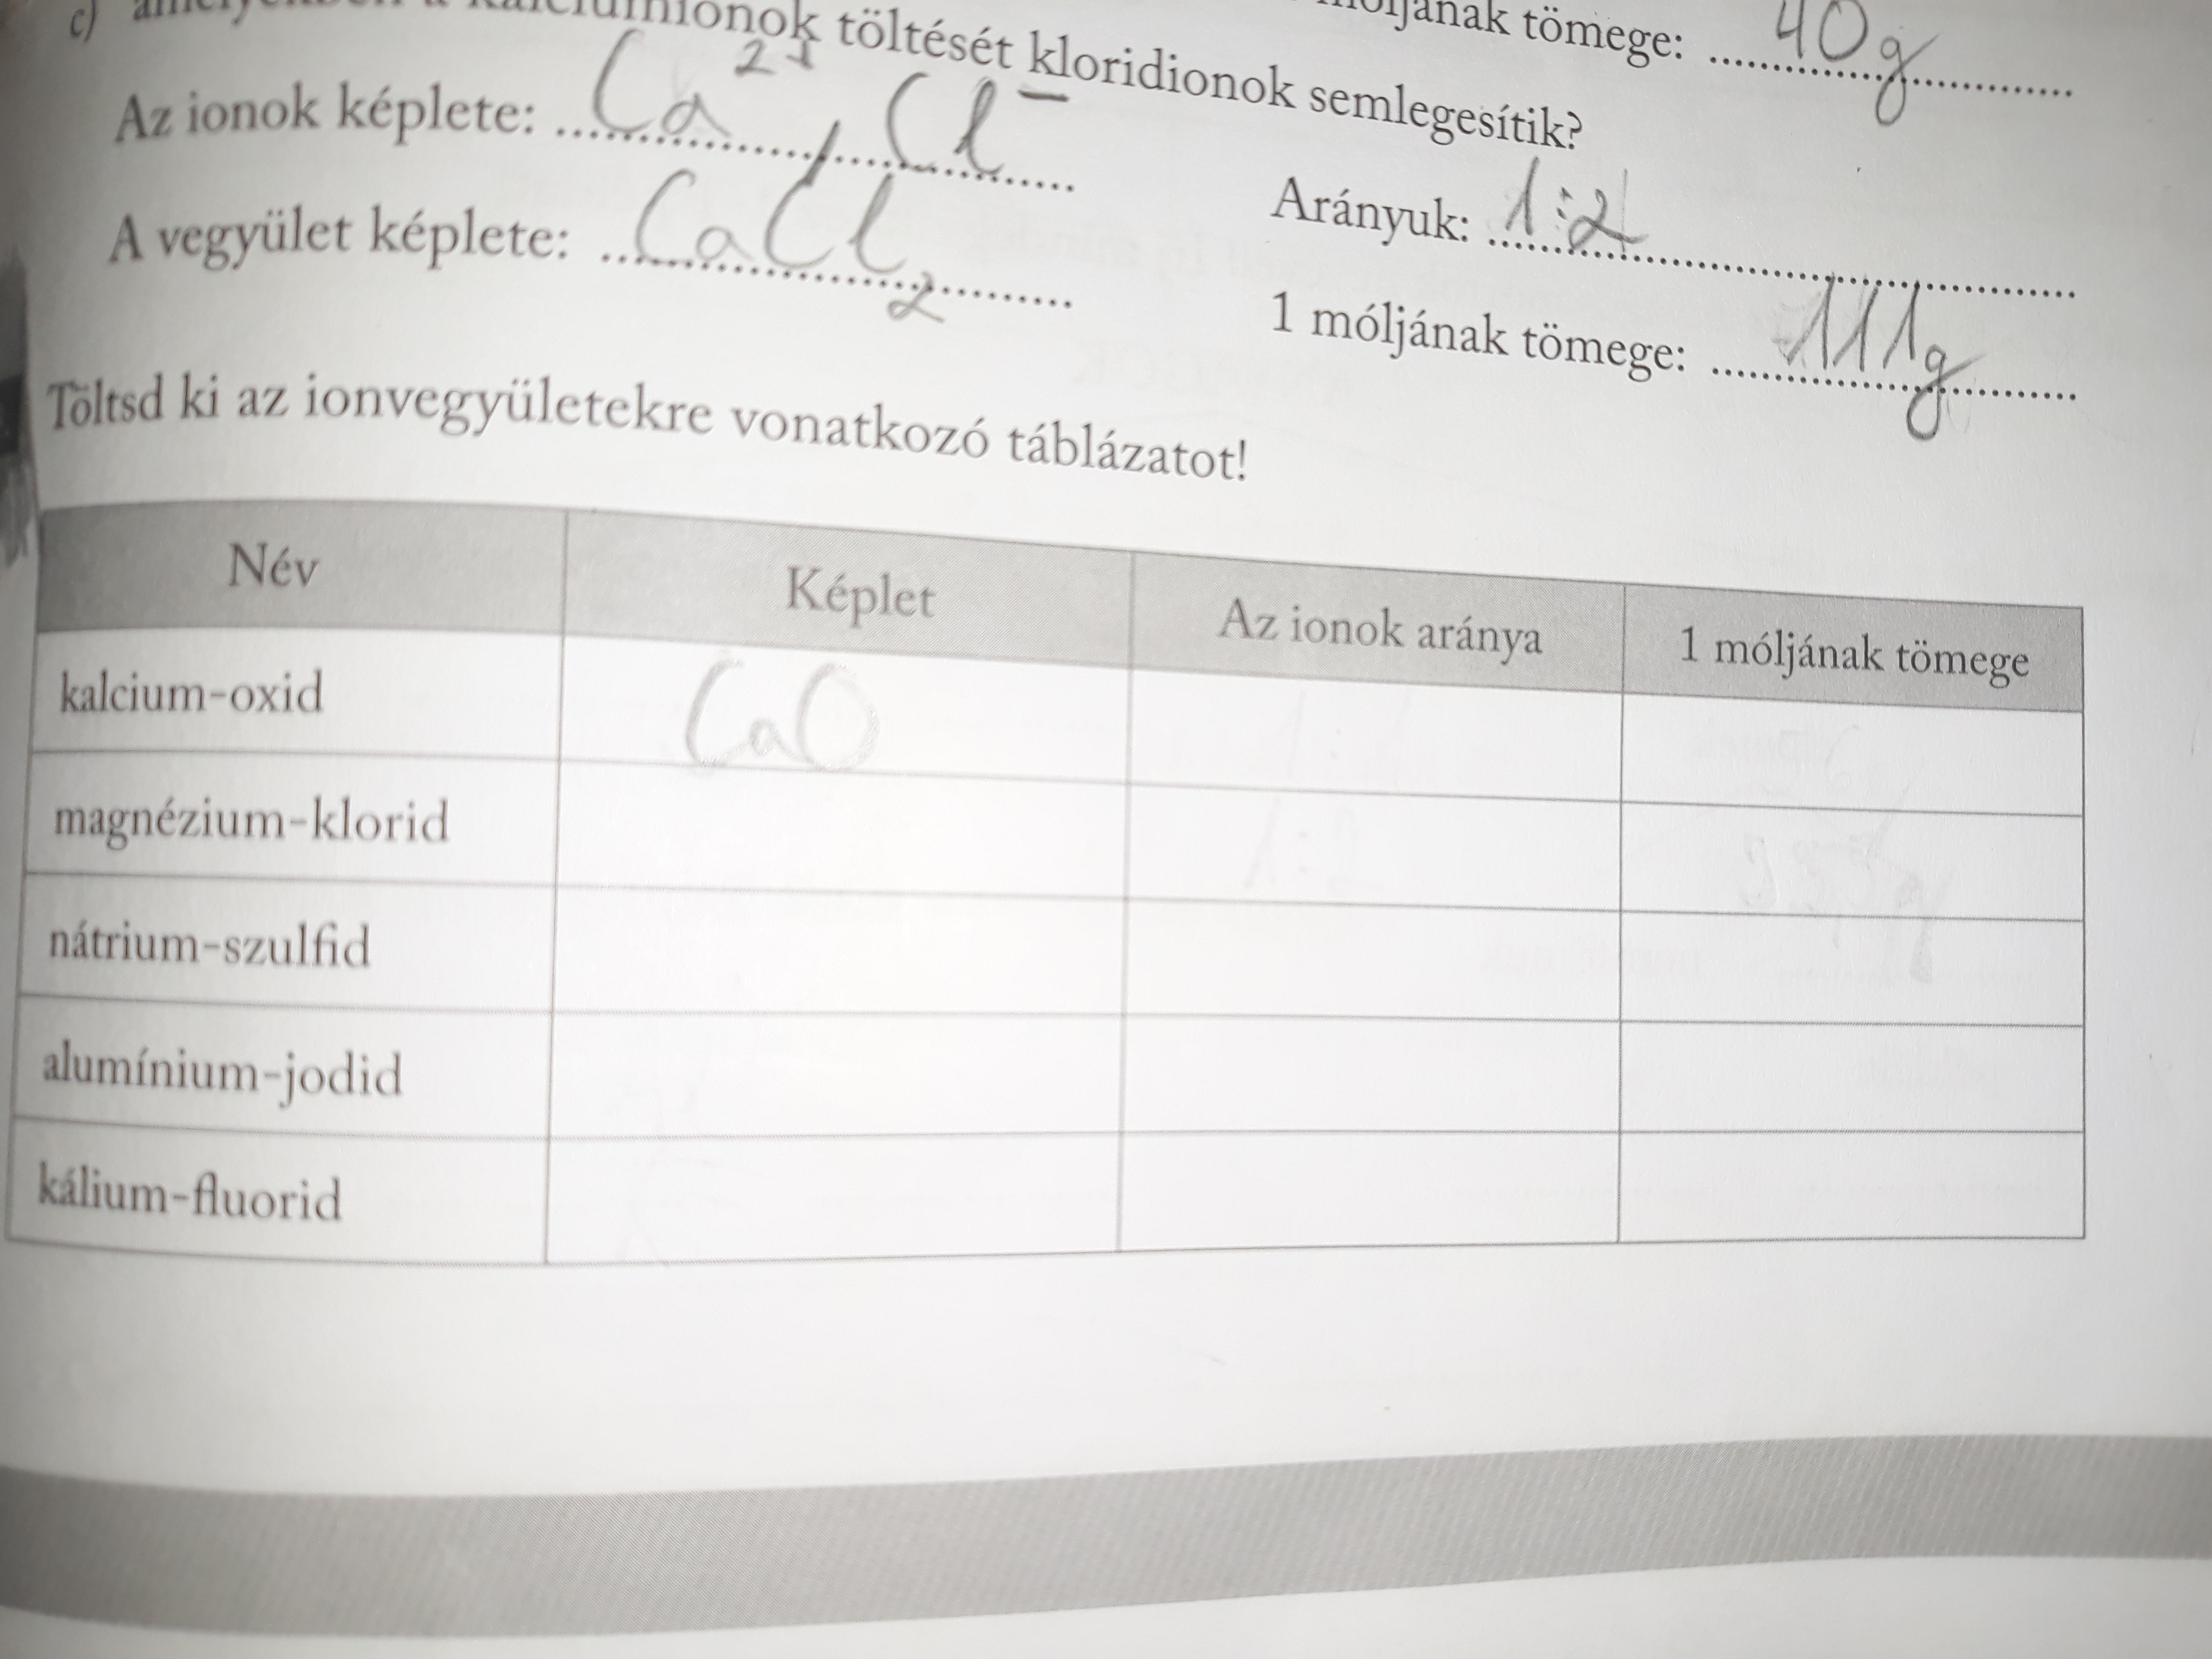 c) amelyekben a kalciumionok töltését kloridionok semlegesítik?
móljának tömege: 40g
Az ionok képlete: Ca²⁺, Cl⁻
Arányuk: 1:2
A vegyület képlete: CaCl₂
1 móljának tömege: 111g
Töltsd ki az ionvegyületekre vonatkozó táblázatot!
Név Képlet Az ionok aránya 1 móljának tömege
kalcium-oxid CaO
magnézium-klorid
nátrium-szulfid
alumínium-jodid
kálium-fluorid